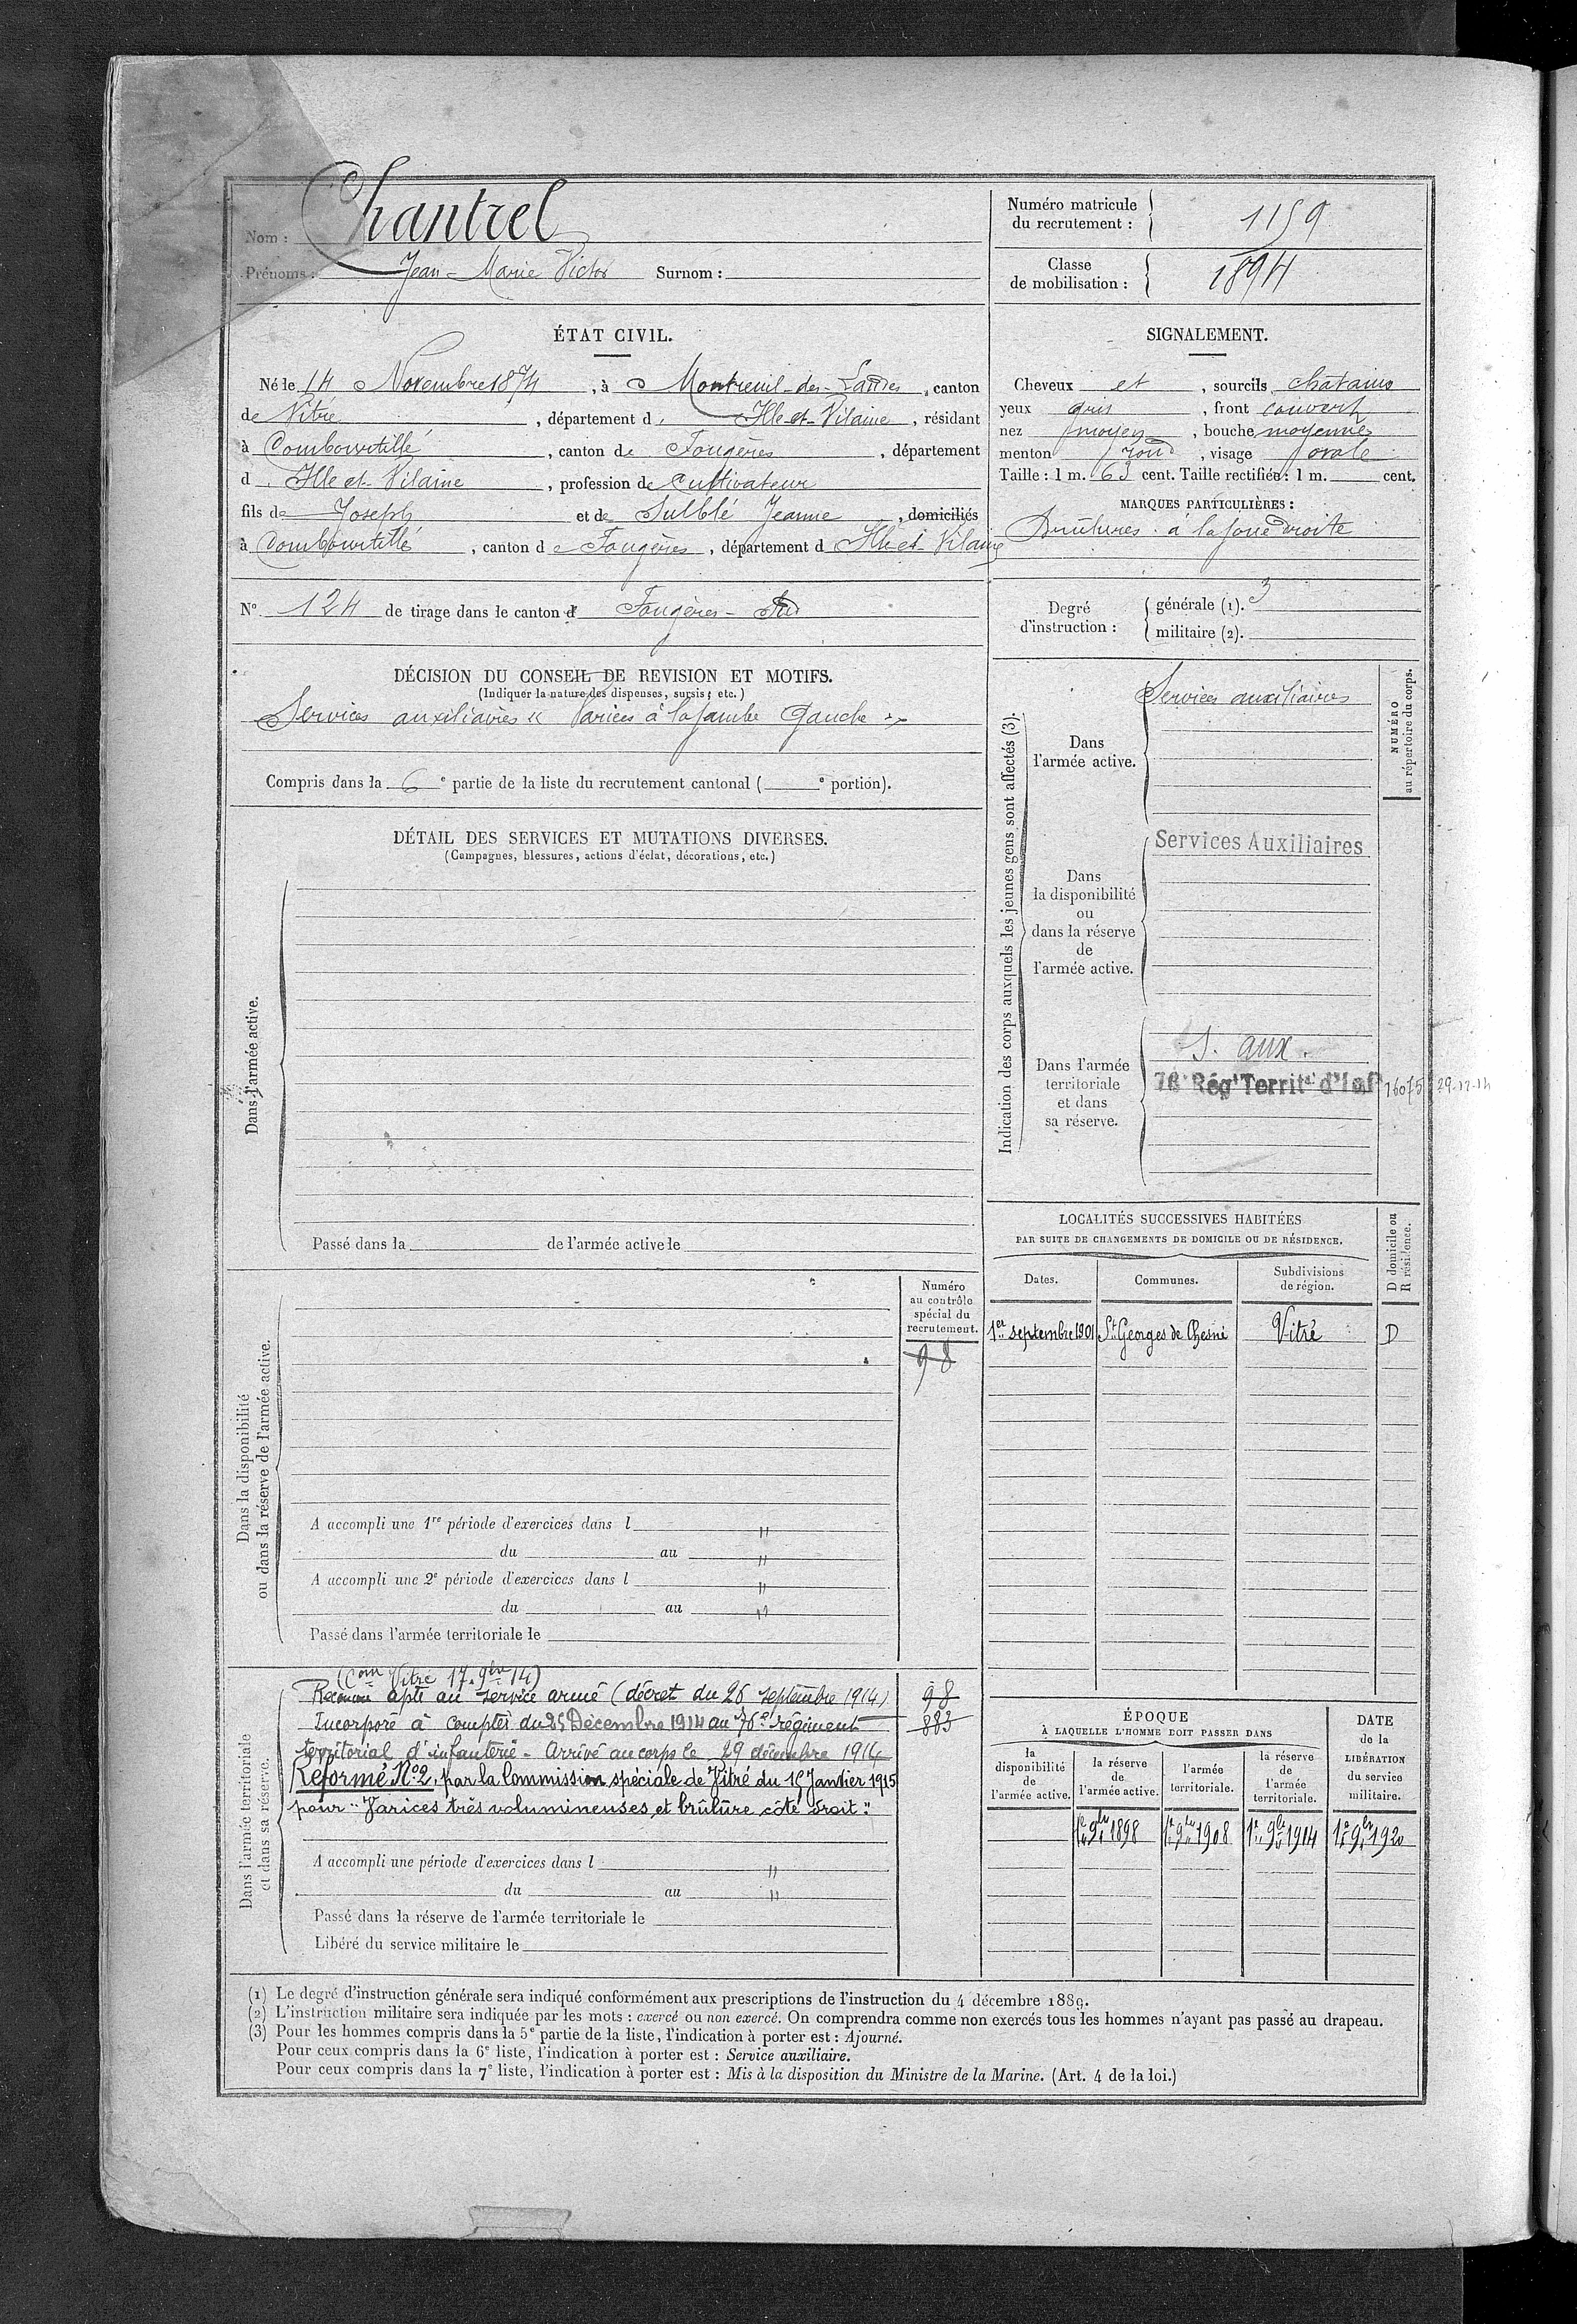 Nom : Chantrel
Prénoms : Jean-Marie Victor Surnom :
Numéro matricule du recrutement : 1159
Classe de mobilisation : 1894
ÉTAT CIVIL.
Né le 14 Novembre 1874, à Montreuil-des-Landes, canton
de Vitré, département d Ille-et-Vilaine, résidant
à Combourtillé, canton de Fougères, département
d Ille et Vilaine, profession de Cultivateur
fils de Joseph et de Sulblé Jeanne, domiciliés
à Combourtillé, canton de Fougères, département d Ille et Vilaine
N° 124 de tirage dans le canton d Fougères-Sud
SIGNALEMENT.
Cheveux et, sourcils châtains
yeux gris, front couvert
nez moyen, bouche moyenne
menton rond, visage ovale
Taille : 1 m. 63 cent. Taille rectifiée : 1 m. cent.
MARQUES PARTICULIÈRES :
Brûlures à la joue droite
Degré d'instruction :
générale (1). 3
militaire (2).
DÉCISION DU CONSEIL DE REVISION ET MOTIFS.
(Indiquer la nature des dispenses, sursis, etc.)
Services auxiliaires « Varices à la jambe Gauche »
Compris dans la 6e partie de la liste du recrutement cantonal ( e portion).
DÉTAIL DES SERVICES ET MUTATIONS DIVERSES.
(Campagnes, blessures, actions d'éclat, décorations, etc.)
Dans l'armée active.
Passé dans la de l'armée active le
Indication des corps auxquels les jeunes gens sont affectés (3).
NUMÉRO au répertoire du corps.
Dans l'armée active.
Services auxiliaires
Dans la disponibilité ou dans la réserve de l'armée active.
Services Auxiliaires
Dans l'armée territoriale et dans sa réserve.
S. aux.
76e Régt Territal d'Infie 16075 29-12-14
LOCALITÉS SUCCESSIVES HABITÉES
PAR SUITE DE CHANGEMENTS DE DOMICILE OU DE RÉSIDENCE.
D domicile ou R résidence.
Dates. Communes. Subdivisions de région.
1er septembre 1901 St Georges de Chesné Vitré D
Dans la disponibilité ou dans la réserve de l'armée active.
Numéro au contrôle spécial du recrutement.
98
A accompli une 1re période d'exercices dans l "
du au "
A accompli une 2e période d'exercices dans l "
du au "
Passé dans l'armée territoriale le
Dans l'armée territoriale et dans sa réserve.
(Con Vitré 17. 9bre 14)
Reconnu apte au service armé (décret du 26 septembre 1914) 98
Incorporé à compter du 25 Décembre 1914 au 76e régiment 883
territorial d'infanterie - Arrivé au corps le 29 décembre 1914
Réformé N°2, par la Commission spéciale de Vitré du 15 Janvier 1915
pour "Varices très volumineuses et brûlure côté droit."
A accompli une période d'exercices dans l "
du au "
Passé dans la réserve de l'armée territoriale le
Libéré du service militaire le
ÉPOQUE
À LAQUELLE L'HOMME DOIT PASSER DANS
la disponibilité de l'armée active.
la réserve de l'armée active.
l'armée territoriale.
la réserve de l'armée territoriale.
DATE de la LIBÉRATION du service militaire.
1er 9bre 1898 1er 9bre 1908 1er 9bre 1914 1er 9bre 1920
(1) Le degré d'instruction générale sera indiqué conformément aux prescriptions de l'instruction du 4 décembre 1889.
(2) L'instruction militaire sera indiquée par les mots : exercé ou non exercé. On comprendra comme non exercés tous les hommes n'ayant pas passé au drapeau.
(3) Pour les hommes compris dans la 5e partie de la liste, l'indication à porter est : Ajourné.
Pour ceux compris dans la 6e liste, l'indication à porter est : Service auxiliaire.
Pour ceux compris dans la 7e liste, l'indication à porter est : Mis à la disposition du Ministre de la Marine. (Art. 4 de la loi.)